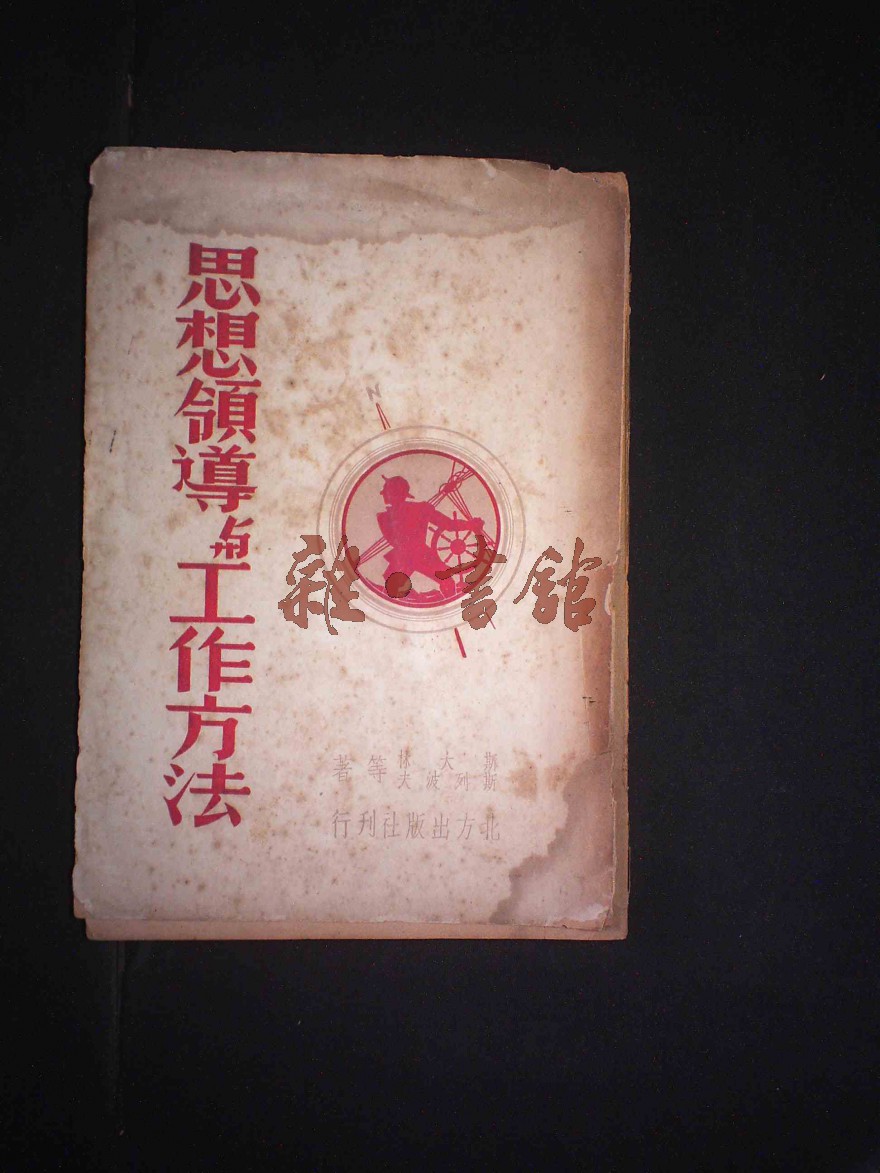 思想領導與工作方法
N
雜·書館
斯大林
斯列波夫
等著
北方出版社刊行